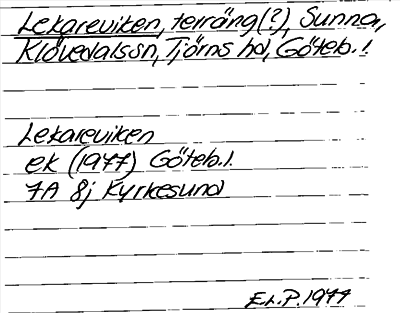 Lekareviken, terräng(?), Sunna,
Klövedalssn, Tjörns hd, Göteb. l.
Lekareviken
ek (1977) Göteb. l.
7A 8j Kyrkesund
E.L.P. 1977